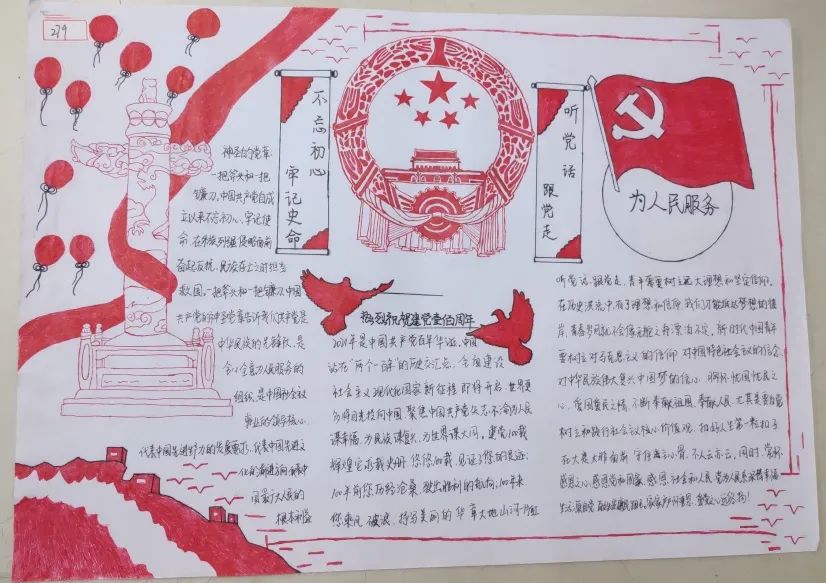 279
不忘初心
牢记史命
听党话
跟党走
为人民服务
神圣的党章
一把斧头和一把
镰刀,中国共产党自成
立以来不忘初心,牢记使
命,在外族列强侵略面前
奋起反抗,民族存亡之时担当
救国。一把斧头和一把镰刀,中国
共产党的神圣党章告诉我们共产党是
中华民族的先锋队,是
全心全意为人民服务的
组织,是中国社会主
事业的领导核心,
代表中国先进生产力的发展要求,代表中国先进文
化的前进方向,代表中
国最广大人民的
根本利益
热烈祝贺建党壹佰周年
2021年是中国共产党百年华诞,中国
站在"两个一百年"的历史交汇点,全面建设
社会主义现代化国家新征程即将开启,世界更
多将目光投向中国,聚焦中国共产党矢志不渝为人民
谋幸福,为民族谋复兴,为世界谋大同。建党100载
辉煌已载史册,悠悠100载,见证了您的足迹;
100年前您历经沧桑,
您乘风破浪,描写美丽的华章大地山河一片红
听党话,跟党走,青年需要树立远大理想和坚定信仰。
在历史洪流中,有了理想和信仰,我们才能抵达梦想的彼
岸,青春岁月就不会像无舵之舟漂泊不定。新时代中国青年
要树立对马克思主义的信仰,对中国特色社会主义的信念,
对中华民族伟大复兴中国梦的信心,胸怀忧国忧民之
心、爱国爱民之情,不断奉献祖国、奉献人民,尤其是要自觉
树立和践行社会主义核心价值观,扣好人生第一粒扣子
在大是大非面前,守住底心骨,不人云亦云,同时,常怀
感恩之心,感恩党和国家,感恩社会和人民,